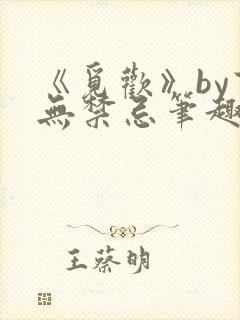 《覓歡》by
無禁忌筆趣
王蔡明